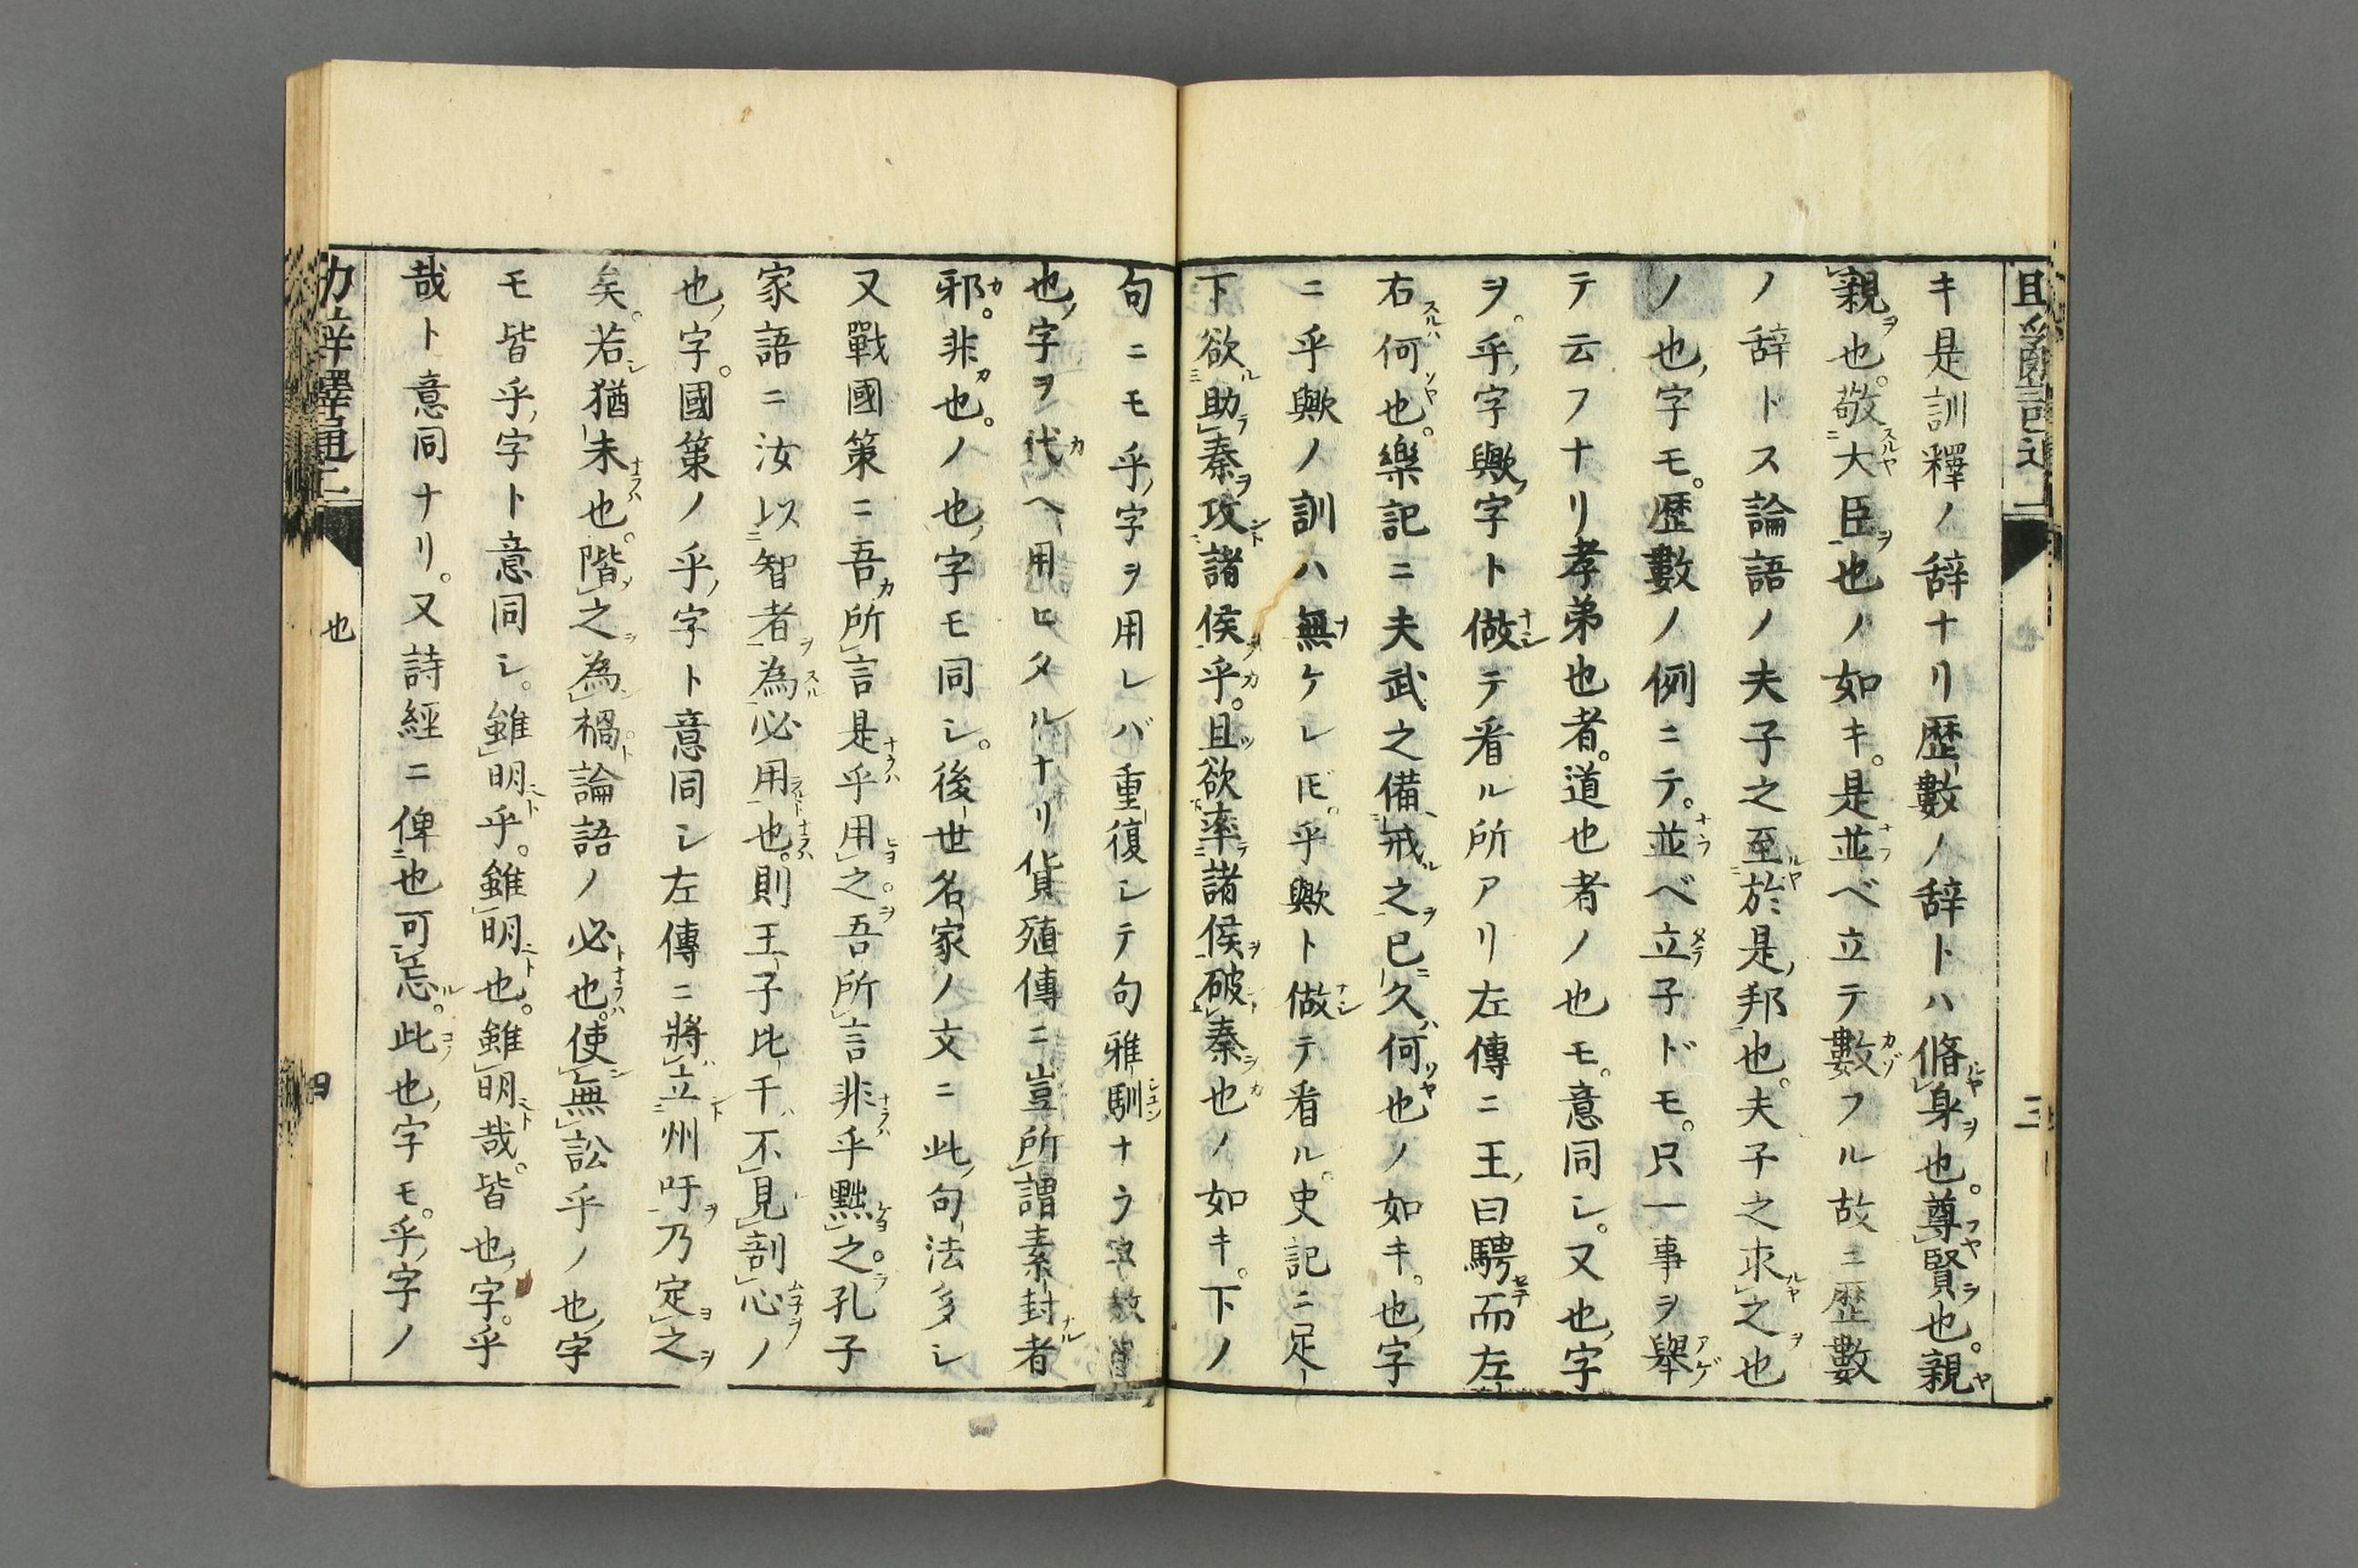 キ是訓釋ノ辞ナリ歴數ノ辞トハ脩身也。尊賢也。親
親也。敬大臣也ノ如キ。是並ベ立テ數フル故ニ歴數
ノ辞トス論語ノ夫子之至於是邦也。夫子之求之也
ノ也字モ。歴數ノ例ニテ。並ベ立子ドモ。只一事ヲ舉
テ云フナリ孝弟也者。道也者ノ也モ。意同シ。又也字
ヲ。乎字歟字ト做テ看ル所アリ左傳ニ王曰騁而左
右何也。樂記ニ夫武之備戒之已久何也ノ如キ。也字
ニ乎歟ノ訓ハ無ケレドモ。乎歟ト做テ看ル。史記ニ足
下欲助秦攻諸侯乎。且欲率諸侯破秦也ノ如キ。下ノ
句ニモ乎字ヲ用レバ重復シテ句雅馴ナラ
也字ヲ代ヘ用ヒタルナリ貨殖傳ニ豈所謂素封者
邪。非也。ノ也字モ同シ。後世名家ノ文ニ此句法多シ
又戰國策ニ吾所言是乎用之。吾所言非乎黙之。孔子
家語ニ汝以智者為必用也。則王子比干不見剖心ノ
也字。國策ノ乎字ト意同シ左傳ニ將立州吁乃定之
矣。若猶未也。階之為禍論語ノ必也。使無訟乎ノ也字
モ皆乎字ト意同シ。雖明乎。雖明也。雖明哉。皆也字。乎
哉ト意同ナリ。又詩經ニ俾也可忘。此也字モ。乎字ノ
也
三
四